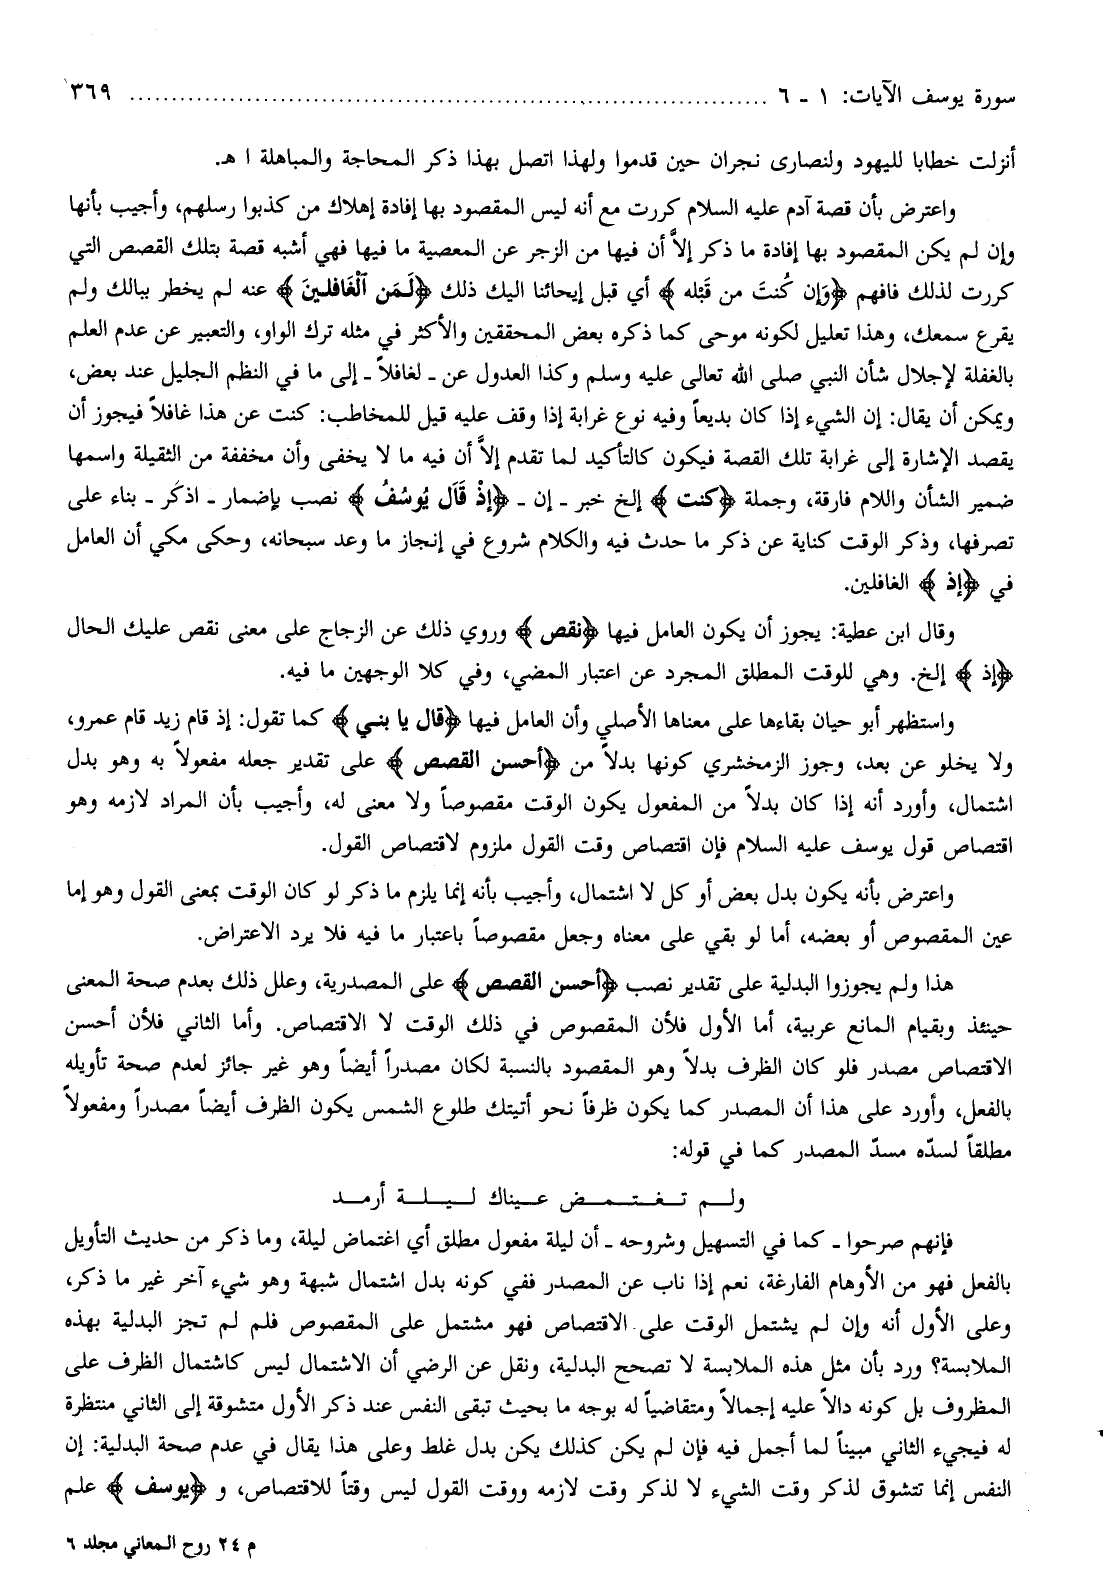 سورة يوسف الآيات: ١ ـ ٦ ........................................................................ ٣٦٩
أنزلت خطابا لليهود ولنصارى نجران حين قدموا ولهذا اتصل بهذا ذكر المحاجة والمباهلة ا هـ.
واعترض بأن قصة آدم عليه السلام كررت مع أنه ليس المقصود بها إفادة إهلاك من كذبوا رسلهم، وأجيب بأنها
وإن لم يكن المقصود بها إفادة ما ذكر إلاَّ أن فيها من الزجر عن المعصية ما فيها فهي أشبه قصة بتلك القصص التي
كررت لذلك فافهم ﴿وَإِن كُنتَ من قَبْله﴾ أي قبل إيحائنا اليك ذلك ﴿لَمَن ٱلْغَافلينَ﴾ عنه لم يخطر ببالك ولم
يقرع سمعك، وهذا تعليل لكونه موحى كما ذكره بعض المحققين والأكثر في مثله ترك الواو، والتعبير عن عدم العلم
بالغفلة لإجلال شأن النبي صلى الله تعالى عليه وسلم وكذا العدول عن ـ لغافلاً ـ إلى ما في النظم الجليل عند بعض،
ويمكن أن يقال: إن الشيء إذا كان بديعاً وفيه نوع غرابة إذا وقف عليه قيل للمخاطب: كنت عن هذا غافلاً فيجوز أن
يقصد الإشارة إلى غرابة تلك القصة فيكون كالتأكيد لما تقدم إلاَّ أن فيه ما لا يخفى وأن مخففة من الثقيلة واسمها
ضمير الشأن واللام فارقة، وجملة ﴿كنت﴾ إلخ خبر ـ إن ـ ﴿إذْ قَال يُوسُفُ﴾ نصب بإضمار ـ اذكُر ـ بناء على
تصرفها، وذكر الوقت كناية عن ذكر ما حدث فيه والكلام شروع في إنجاز ما وعد سبحانه، وحكى مكي أن العامل
في ﴿إذ﴾ الغافلين.
وقال ابن عطية: يجوز أن يكون العامل فيها ﴿نقص﴾ وروي ذلك عن الزجاج على معنى نقص عليك الحال
﴿إذ﴾ إلخ. وهي للوقت المطلق المجرد عن اعتبار المضي، وفي كلا الوجهين ما فيه.
واستظهر أبو حيان بقاءها على معناها الأصلي وأن العامل فيها ﴿قال يا بني﴾ كما تقول: إذ قام زيد قام عمرو،
ولا يخلو عن بعد، وجوز الزمخشري كونها بدلاً من ﴿أحسن القصص﴾ على تقدير جعله مفعولاً به وهو بدل
اشتمال، وأورد أنه إذا كان بدلاً من المفعول يكون الوقت مقصوصاً ولا معنى له، وأجيب بأن المراد لازمه وهو
اقتصاص قول يوسف عليه السلام فإن اقتصاص وقت القول ملزوم لاقتصاص القول.
واعترض بأنه يكون بدل بعض أو كل لا اشتمال، وأجيب بأنه إنما يلزم ما ذكر لو كان الوقت بمعنى القول وهو إما
عين المقصوص أو بعضه، أما لو بقي على معناه وجعل مقصوصاً باعتبار ما فيه فلا يرد الاعتراض.
هذا ولم يجوزوا البدلية على تقدير نصب ﴿أحسن القصص﴾ على المصدرية، وعلل ذلك بعدم صحة المعنى
حينئذ وبقيام المانع عربية، أما الأول فلأن المقصوص في ذلك الوقت لا الاقتصاص. وأما الثاني فلأن أحسن
الاقتصاص مصدر فلو كان الظرف بدلاً وهو المقصود بالنسبة لكان مصدراً أيضاً وهو غير جائز لعدم صحة تأويله
بالفعل، وأورد على هذا أن المصدر كما يكون ظرفاً نحو أتيتك طلوع الشمس يكون الظرف أيضاً مصدراً ومفعولاً
مطلقاً لسدّه مسدّ المصدر كما في قوله:
ولـم تـغـتـمـض عـيناك لـيـلـة أرمـد
فإنهم صرحوا ـ كما في التسهيل وشروحه ـ أن ليلة مفعول مطلق أي اغتماض ليلة، وما ذكر من حديث التأويل
بالفعل فهو من الأوهام الفارغة، نعم إذا ناب عن المصدر ففي كونه بدل اشتمال شبهة وهو شيء آخر غير ما ذكر،
وعلى الأول أنه وإن لم يشتمل الوقت على الاقتصاص فهو مشتمل على المقصوص فلم لم تجز البدلية بهذه
الملابسة؟ ورد بأن مثل هذه الملابسة لا تصحح البدلية، ونقل عن الرضي أن الاشتمال ليس كاشتمال الظرف على
المظروف بل كونه دالاً عليه إجمالاً ومتقاضياً له بوجه ما بحيث تبقى النفس عند ذكر الأول متشوقة إلى الثاني منتظرة
له فيجيء الثاني مبيناً لما أجمل فيه فإن لم يكن كذلك يكن بدل غلط وعلى هذا يقال في عدم صحة البدلية: إن
النفس إنما تتشوق لذكر وقت الشيء لا لذكر وقت لازمه ووقت القول ليس وقتاً للاقتصاص، و ﴿يوسف﴾ علم
م ٢٤ روح المعاني مجلد ٦